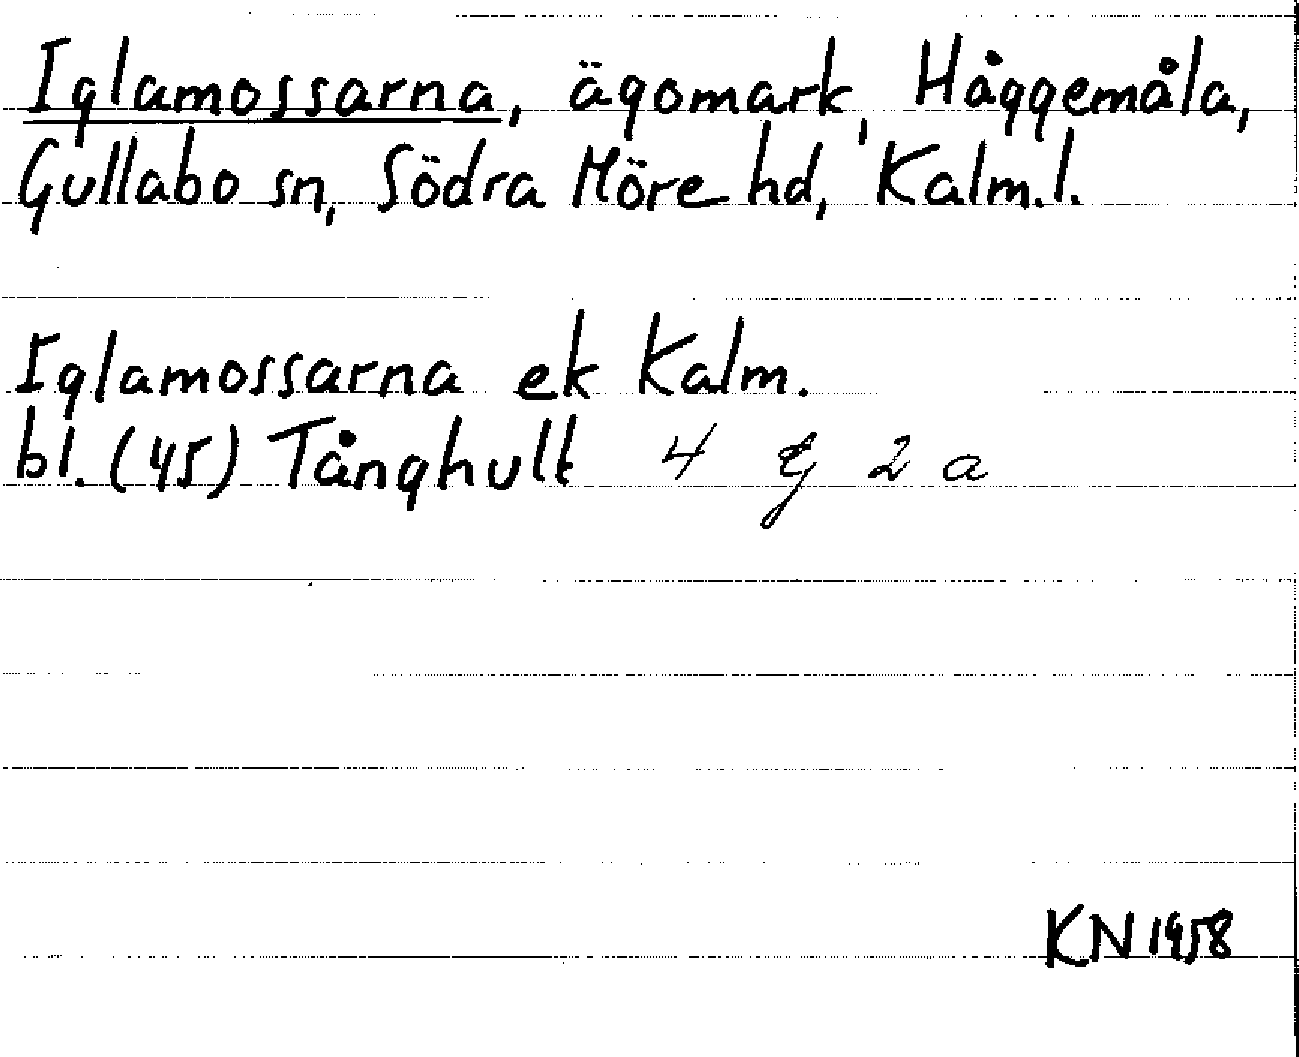 Iglamossarna, ägomark, Håggemåla,
Gullabo sn, Södra Möre hd, Kalm.l.
Iglamossarna ek Kalm.
bl. (45) Tånghult 4 g 2 a
KN 1958